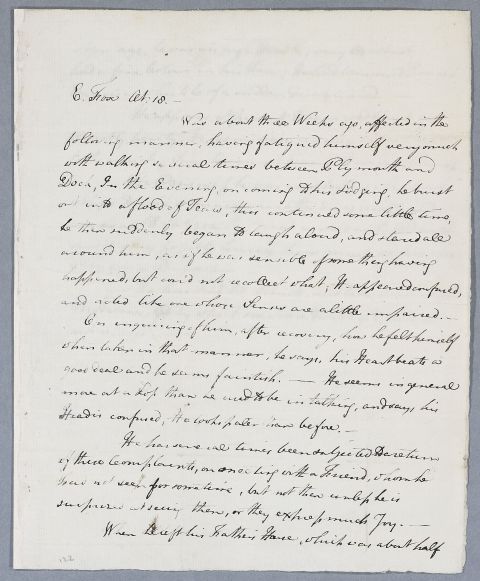 E. Foox At: 18. —
Was about three Weeks ago, affected in the
following manner, having fatigued himself very much
with walking several times between Plymouth and
Dock, In the Evening, on coming to his Lodging, he burst
out into a flood of Tears, this continued some little time,
he then suddenly began to laugh aloud, and stared all
around him, as if he was sensible of something having
happened, but could not recollect what, He appeared confused,
and acted like one whose Senses are a little impaired. —
On inquiring of him, after recovery, how he felt himself
when taken in that manner, he says, his Heart beats a
good deal and he seems faintish. — He seems in general
more at a loss than he used to be in talking, and says his
Head is confused, He looks paler than before. —
He has several times been subjected to a return
of these Complaints, on meeting with a Friend, whom he
had not seen for some time, but not then unless he is
surprised at seeing them, or they express much Joy. —
When he left his Fathers House, which was about half
122